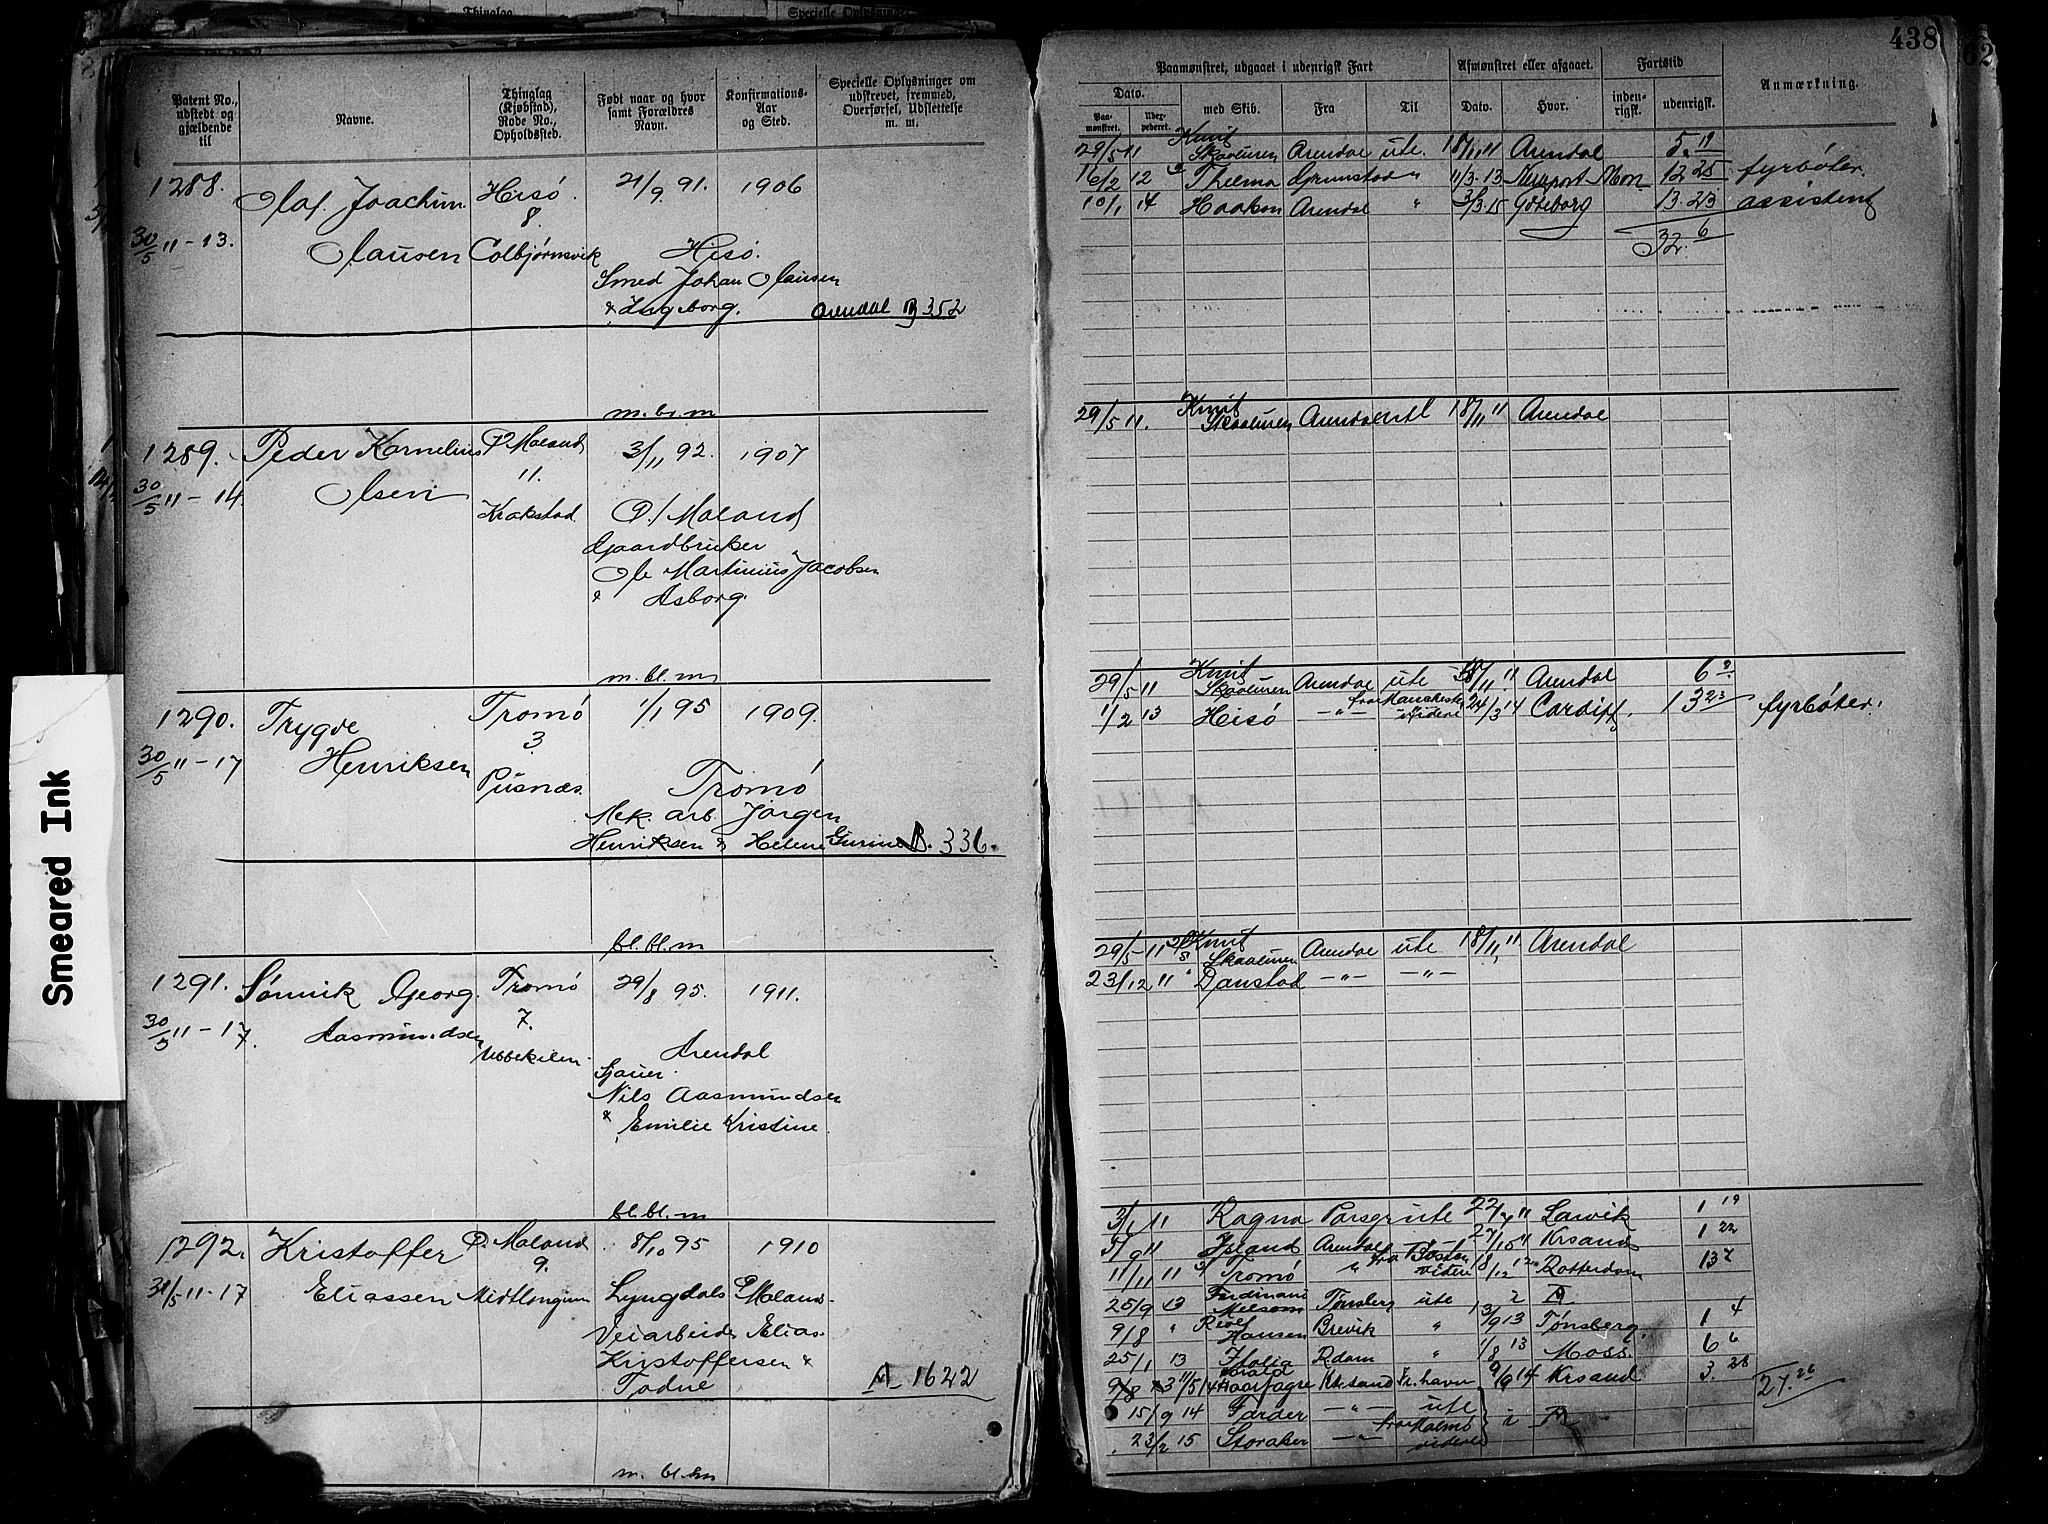 Thinglag
Specielle Oplysninger
438
62
Patent No., udstedt og gjældende til
Navne.
Thinglag (Kjøbstad), Rode No., Opholdssted.
Født naar og hvor samt Forældres Navn.
Konfirmations-Aar og Sted.
Specielle Oplysninger om udskrevet, fremmed, Overførsel, Udslettelse m. m.
1288. Olaf Joachim Hisö 21/9 91. 1906
8
30/5 11-13. Clausen Colbjørnsvik Hisö.
Smed Johan Clausen
& Ingeborg. Arendal B 352
m. bl. m
1289. Peder Kornelius Ø Moland 3/11 92. 1907
11.
30/5 11-14. Olsen
Krakstad Ø/Moland
Gaardbruker
Ole Martinius Jacobsen
& Asborg.
m. bl. m
1290. Trygve Tromö 1/1 95 1909.
3.
30/5 11-17 Henriksen
Pusnæs. Tromö
Mek. arb. Jörgen
Henriksen & Helene Gurine B. 336.
bl. bl. m
1291. Sönnik Georg Tromö 29/8 95. 1911.
7.
30/5 11-17. Aasmundsen
Ubbekilen Arendal
Sjauer
Nils Aasmundsen
& Emilie Kristine
bl. bl. m
1292. Kristoffer Ø. Moland 8/10 95 1910
9.
31/5 11-17 Eliassen Midtlongum Lyngdals Ø Moland
Veiarbeider Elias
Kristoffersen &
Todne A 1622
m. bl. m
Paamønstret, udgaaet i udenrigsk Fart
Afmønstret eller afgaaet.
Fartstid
Anmærkning.
Dato.
med Skib.
Fra
Til
Dato.
Hvor.
inden-rigsk.
udenrigsk.
Paa-mønstret.
Uder-pederet.
29/5 11 Knut Skaaluren Arendal ute. 18/11 11 Arendal 5. 19
16/2 12 Thelma Grimstad " 11/3-13 Newport Mon 12 25 fyrbøter.
10/1 14 Haakon Arendal " 3/3-15 Göteborg 13. 23 assistent
32. 6
29/5 11. Knut Skaaluren Arendal utl 18/11 11 Arendal
29/5 11 Knut Skaaluren Arendal ute 18/11 11 Arendal 6
1/2 13 Hisö -"- fra Manchester videre 24/3 14 Cardiff. 13 23 fyrbøter.
29/5 11 Knut Skaaluren Arendal ute 18/11 11 Arendal
23/12 11 Danstad -"- -"-
3/1 11 Ragna Porsgr ute 22/4 11 Larvik 1 19
5/9 11 Island Arendal 27/10 11 Krsand 1 22
11/11 11 Tromö " fra Boston videre 18/12 12 Rotterdam 13 7
25/9 13 Ferdinand Melsom Tønsberg ute i A
9/8 " Rolf Hansen Brevik " 13/9 13 Tønsberg. 1 4
25/1 13 Italia R.dam " 1/8 13 Moss. 6 6
9/8 13 11/5 14 Harald Haarfagre Krsand Fr. havn 9/9 14 Krsand 3. 28
27. 26
15/9 14 Færder -"- ute
23/2 15 Storaker -"- fra Malmö videre i A
Smeared Ink